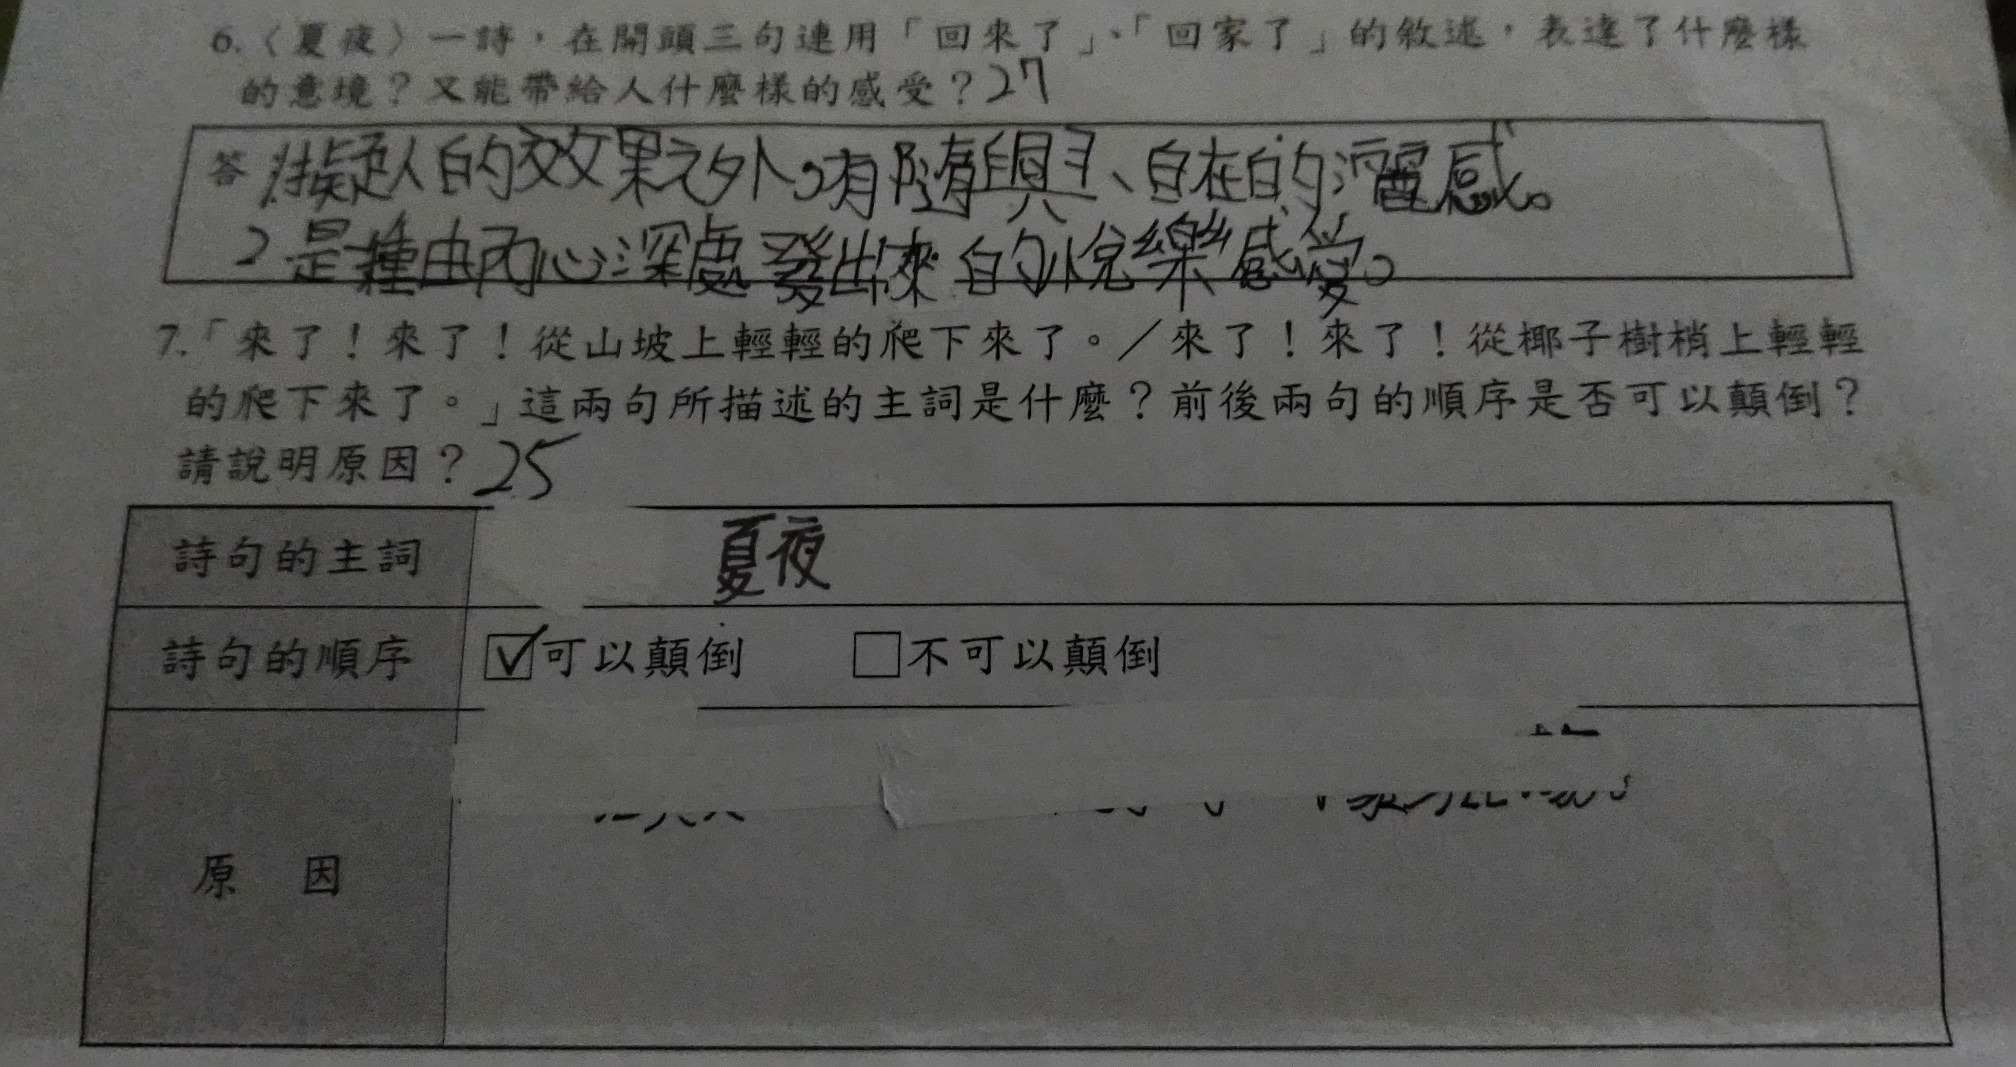 6.〈夏夜〉一詩，在開頭三句連用「回來了」、「回家了」的敘述，表達了什麼樣
的意境？又能帶給人什麼樣的感受？27
答 1.擬人的效果之外,有隨興、自在的靈感。
2是種由內心深處發出來的悅樂感受。
7.「來了！來了！從山坡上輕輕的爬下來了。／來了！來了！從椰子樹梢上輕輕
的爬下來了。」這兩句所描述的主詞是什麼？前後兩句的順序是否可以顛倒？
請說明原因？25
詩句的主詞 夏夜
詩句的順序 ☑可以顛倒 □不可以顛倒
原因